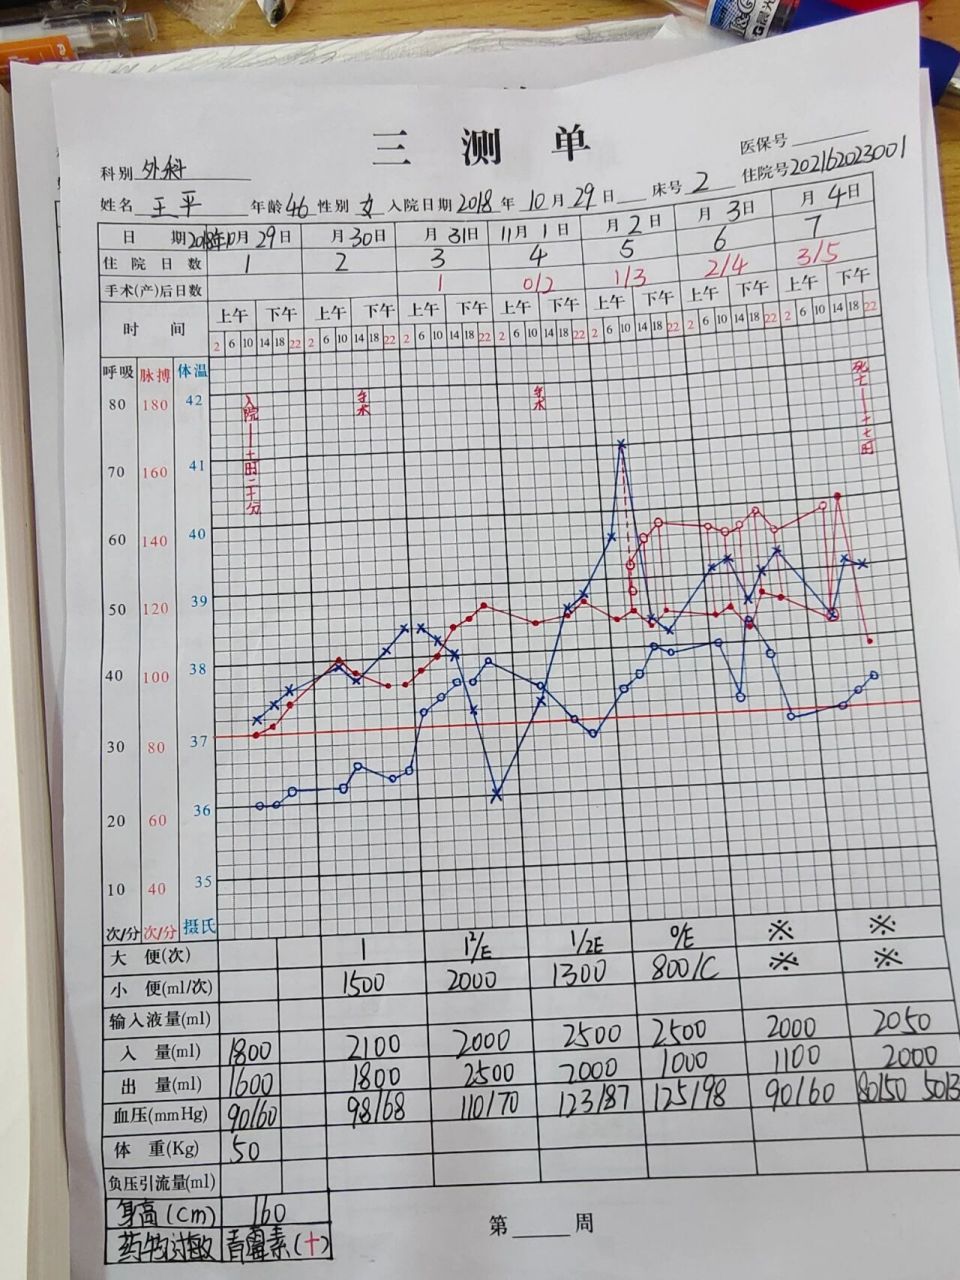 三 测 单
医保号
科别 外科
住院号 202162023001
姓名 王平 年龄 46 性别 女 入院日期 2018 年 10 月 29 日 床号 2
日 期 2018年10月29日 月30日 月31日 11月1日 月2日 月3日 月4日
住院日数 1 2 3 4 5 6 7
手术(产)后日数 1 0/2 1/3 2/4 3/5
时 间 上午 下午 上午 下午 上午 下午 上午 下午 上午 下午 上午 下午 上午 下午
2 6 10 14 18 22 2 6 10 14 18 22 2 6 10 14 18 22 2 6 10 14 18 22 2 6 10 14 18 22 2 6 10 14 18 22 2 6 10 14 18 22
呼吸 脉搏 体温
80 180 42
70 160 41
60 140 40
50 120 39
40 100 38
30 80 37
20 60 36
10 40 35
次/分 次/分 摄氏
入院——十时二十分
手术
手术
死亡——十七时
大 便(次) 1 1²/E 1/2E 0/E ※ ※
小 便(ml/次) 1500 2000 1300 800/C ※ ※
输入液量(ml)
入 量(ml) 1800 2100 2000 2500 2500 2000 2050
出 量(ml) 1600 1800 2500 2000 1000 1100 2000
血压(mmHg) 90/60 98/68 110/70 123/87 125/98 90/60 80/50
体 重(Kg) 50
负压引流量(ml)
身高(Cm) 160
药物过敏 青霉素(+)
第 周